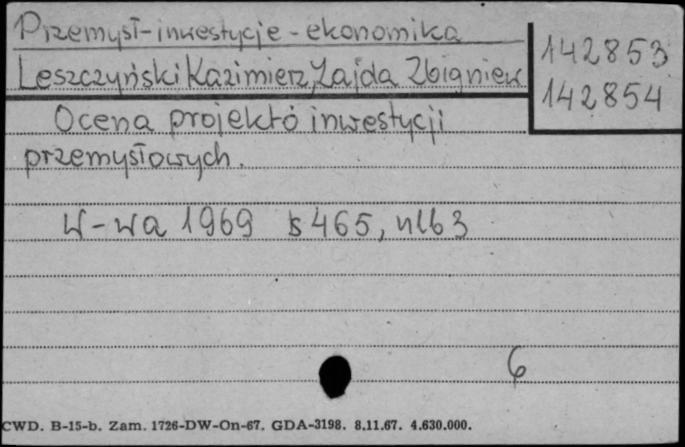 Przemysł-inwestycje-ekonomika
142853
Leszczyński Kazimierz, Zajda Zbigniew
142854
Ocena projektó inwestycji
przemysłowych.
W-wa 1969 s 465, nlb 3
6
CWD. B-15-b. Zam. 1726-DW-On-67. GDA-3198. 8.11.67. 4.630.000.